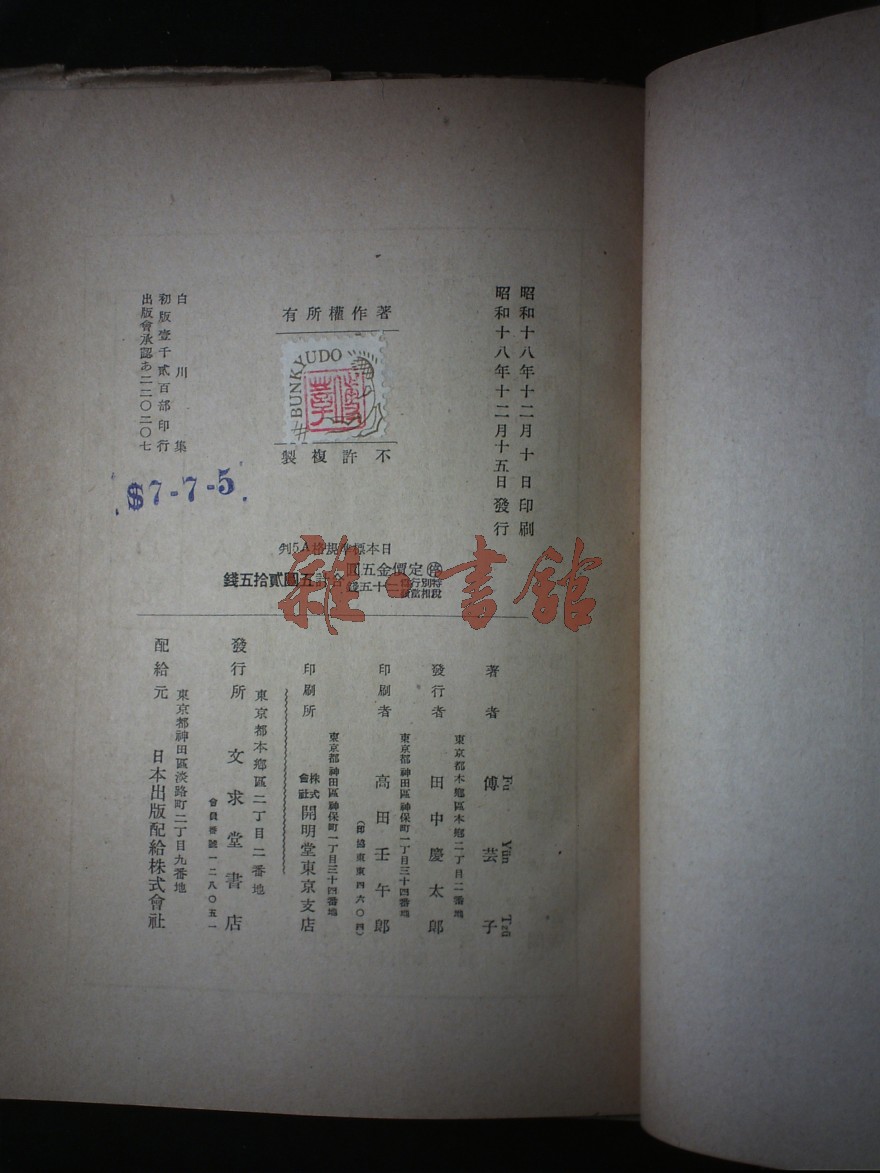 昭和十八年十二月十日印刷
昭和十八年十二月十五日發行
有所權作著
BUNKYUDO
製複許不
白川集
初版壹千貳百部印行
出版會承認あ二二〇二〇七
$7-7-5
日本標準規格A5判
停定價金五圓
特別行爲稅相當額二十五錢
合計五圓貳拾五錢
雜·書館
著者 傅芸子
Fu Yün Tzŭ
東京都本鄉區本鄉二丁目二番地
發行者 田中慶太郎
東京都神田區神保町一丁目三十四番地
印刷者 高田壬午郎
(印協東東四六〇四)
東京都神田區神保町一丁目三十四番地
印刷所 株式會社開明堂東京支店
東京都本鄉區二丁目二番地
發行所 文求堂書店
會員番號一二八〇五一
東京都神田區淡路町二丁目九番地
配給元 日本出版配給株式會社